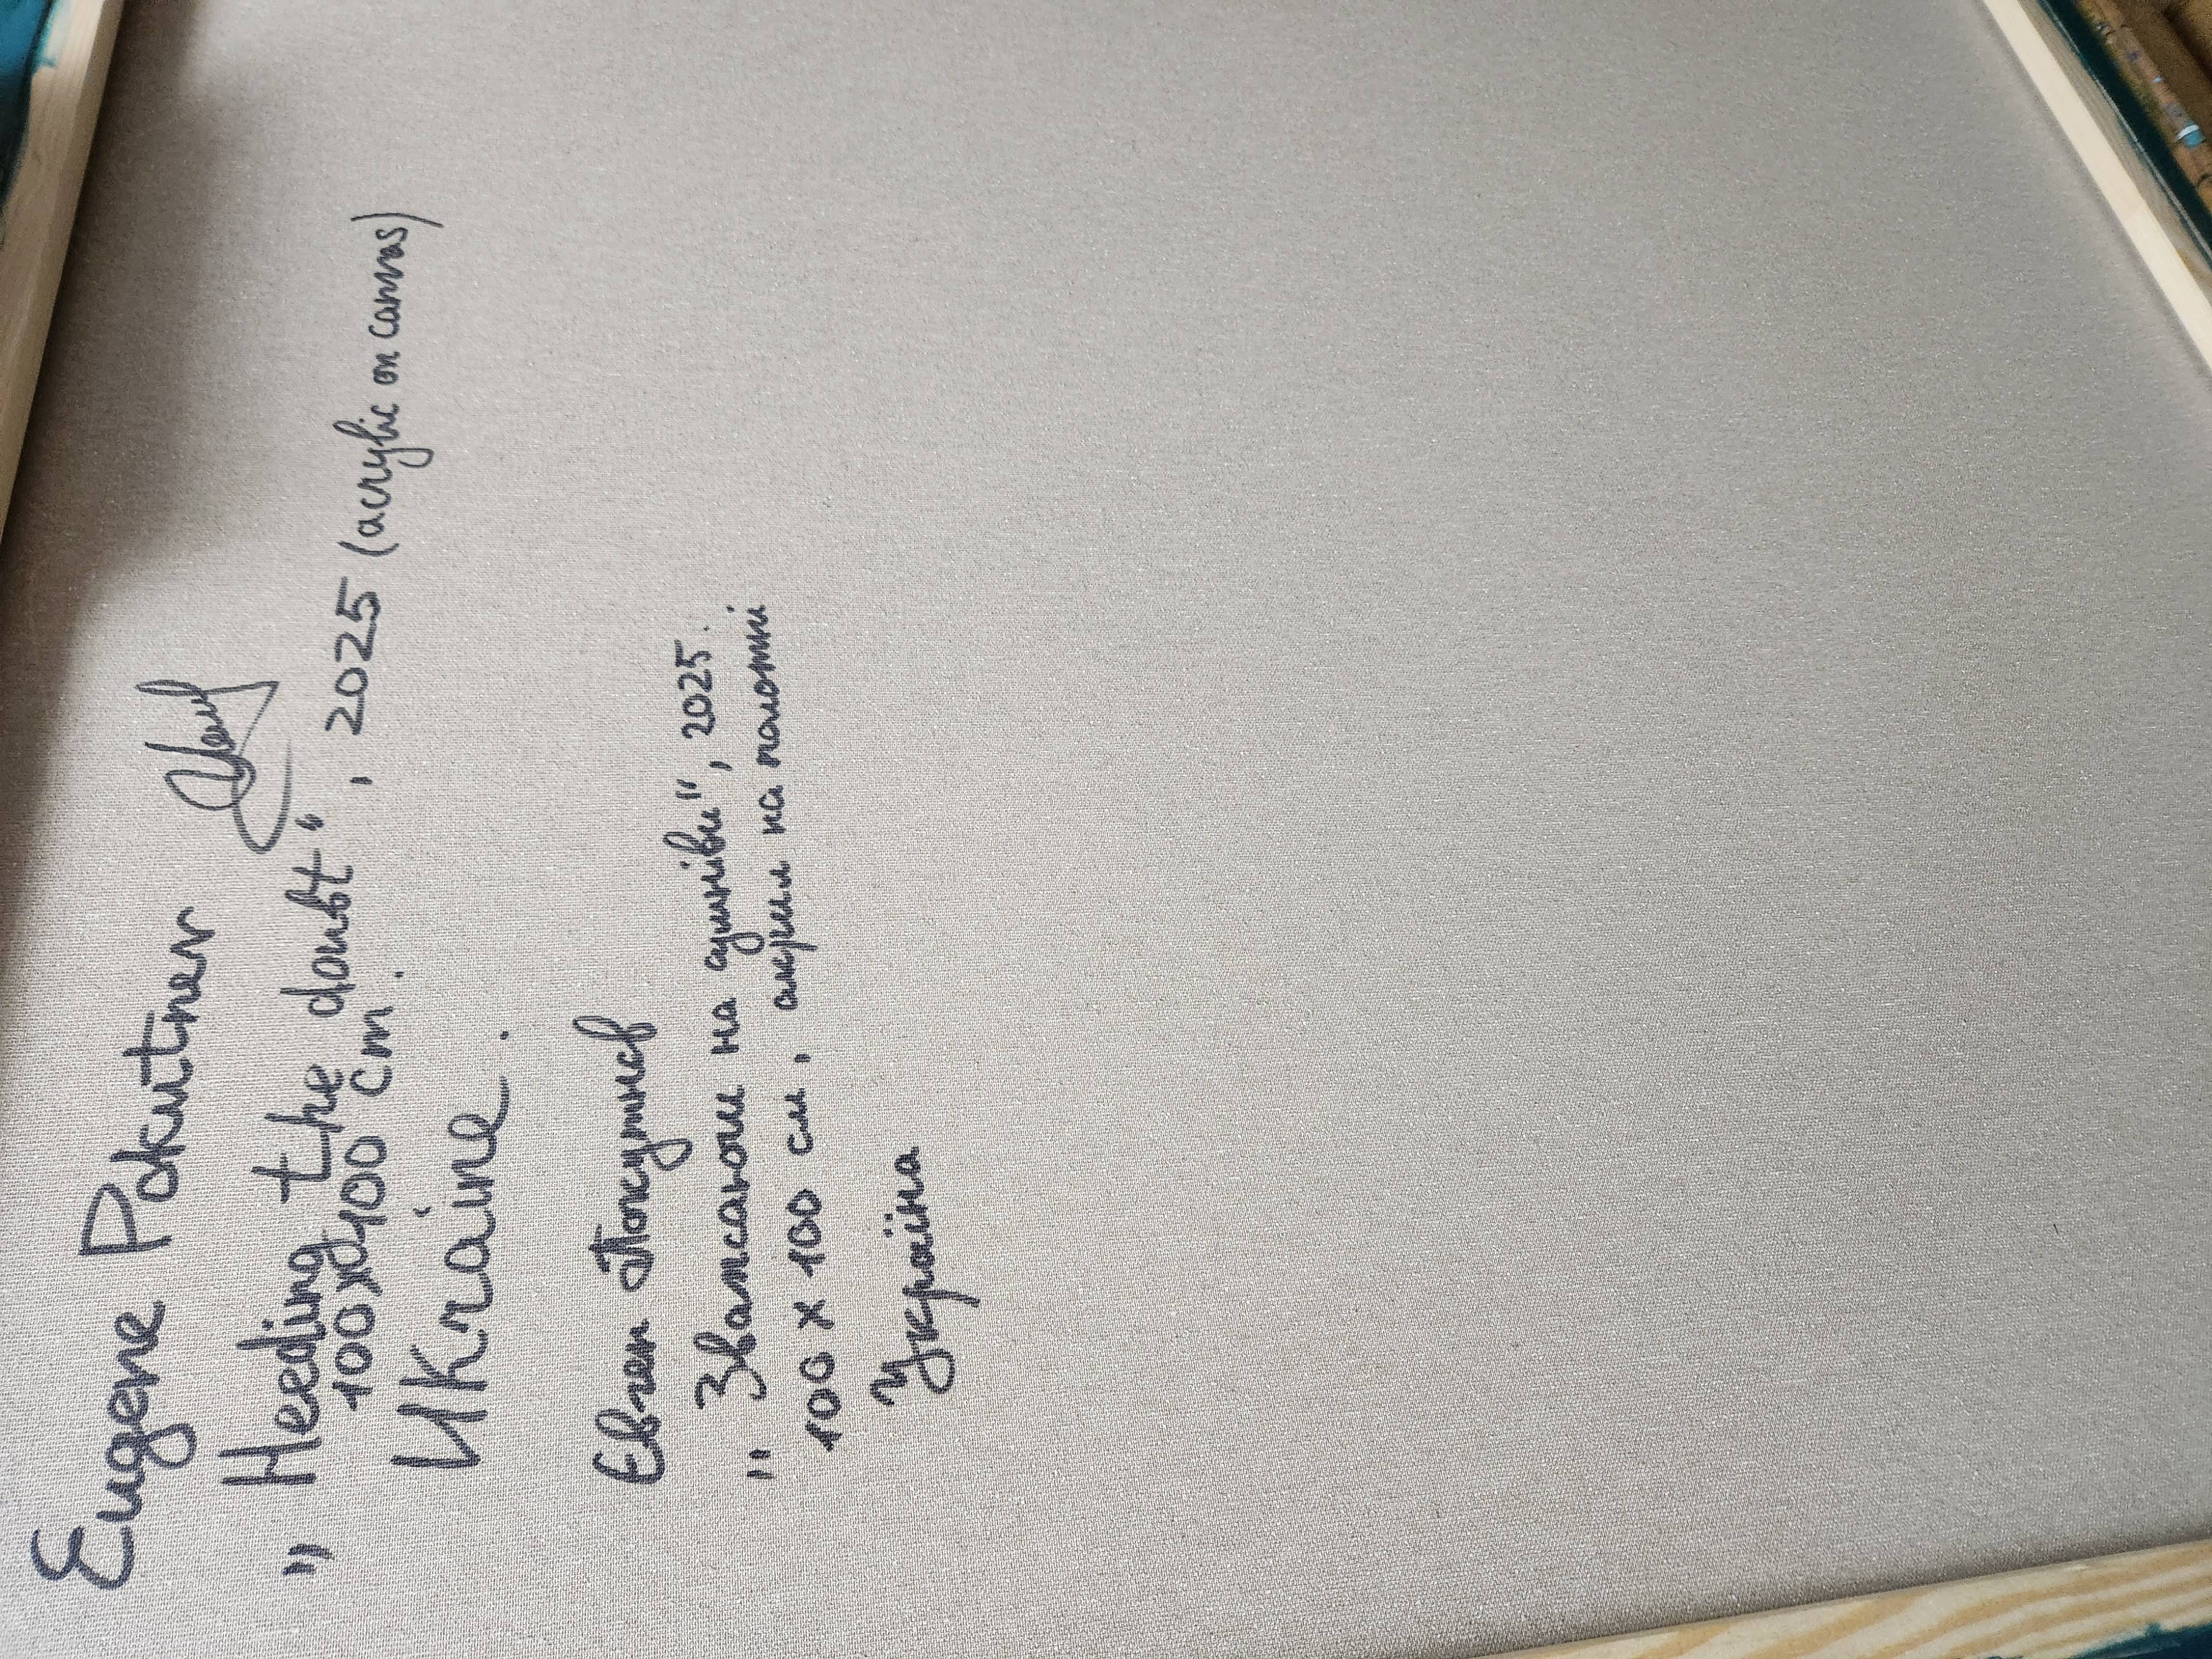 Eugene Pokutnev
"Heeding the doubt", 2025 (acrylic on canvas)
100x100 cm.
Ukraine.
Євген Покутнєв
"Зважаючи на сумніви", 2025.
100 x 100 см, акрил на полотні
Україна